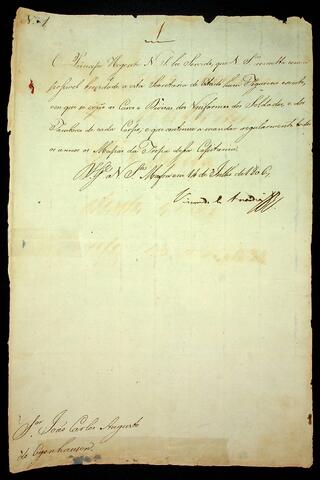 N. 1
O Principe Regente N. S. he Servido, que V. S.ª remetta com a
possivel brevidade a esta Secretaria de Estado huns Figurinos exactos,
em que se vejão as Cores e Divisas dos Uniformes dos Soldados, e dos
Tambores de cada Corpo, e que continue a mandar regularmente todos
os annos os Mappas da Tropa dessa Capitania.
D.s g.e a V. S.ª Mafra em 14 de Julho de 1806,
Visconde de Anadia
S.r João Carlos Augusto
de Oyenhausen